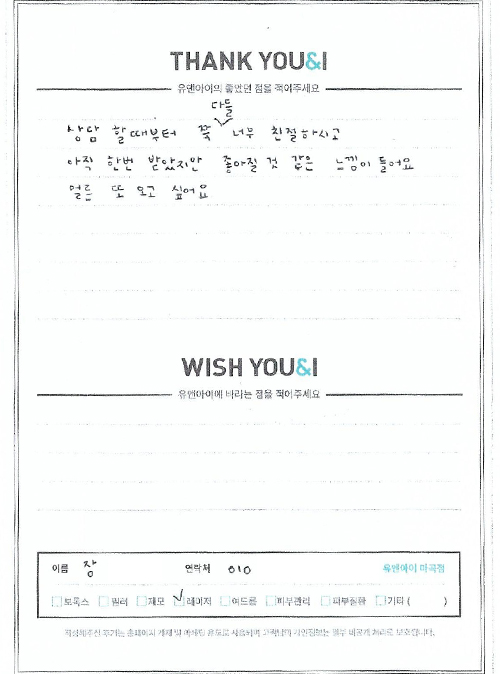 THANK YOU&I
유앤아이의 좋았던 점을 적어주세요
다들
상담 할때부터 쭉 너무 친절하시고
아직 한번 받았지만 좋아질 것 같은 느낌이 들어요
얼른 또 오고 싶어요
WISH YOU&I
유앤아이에 바라는 점을 적어주세요
이름 장 연락처 010 유앤아이 마곡점
보톡스 필러 제모 레이저 여드름 피부관리 피부질환 기타 ( )
작성해주신 후기는 홈페이지 게재 및 마케팅 용도로 사용되며 고객님의 개인정보는 일부 비공개 처리로 보호됩니다.